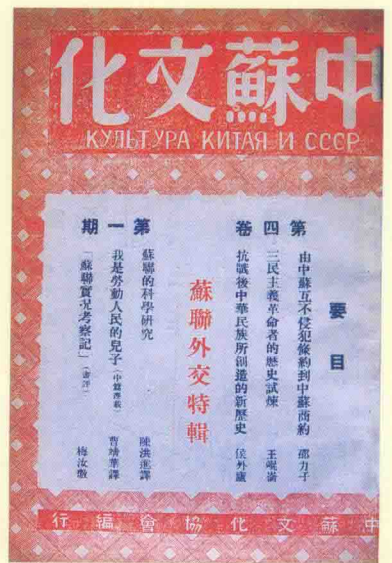 中蘇文化
КУЛЬТУРА КИТАЯ И СССР
第四卷
第一期
要目
由中蘇互不侵犯條約到中蘇商約 邵力子
三民主義革命者的歷史試煉 王崐崙
抗戰後中華民族所創造的新歷史 侯外廬
蘇聯外交特輯
蘇聯的科學研究 陳洪進譯
我是勞動人民的兒子(中篇連載) 曹靖華譯
「蘇聯實況考察記」(書評) 梅汝璈
中蘇文化協會編行